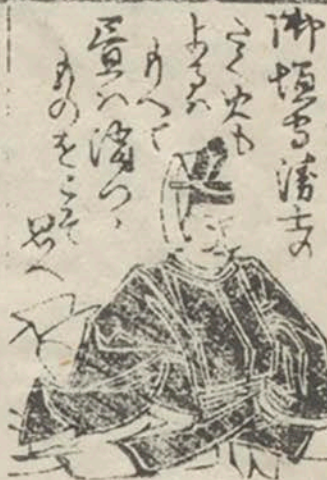 御垣守衛士の
たく火の
よるハ
もへて
昼ハ消つゝ
ものをこそ
思へ